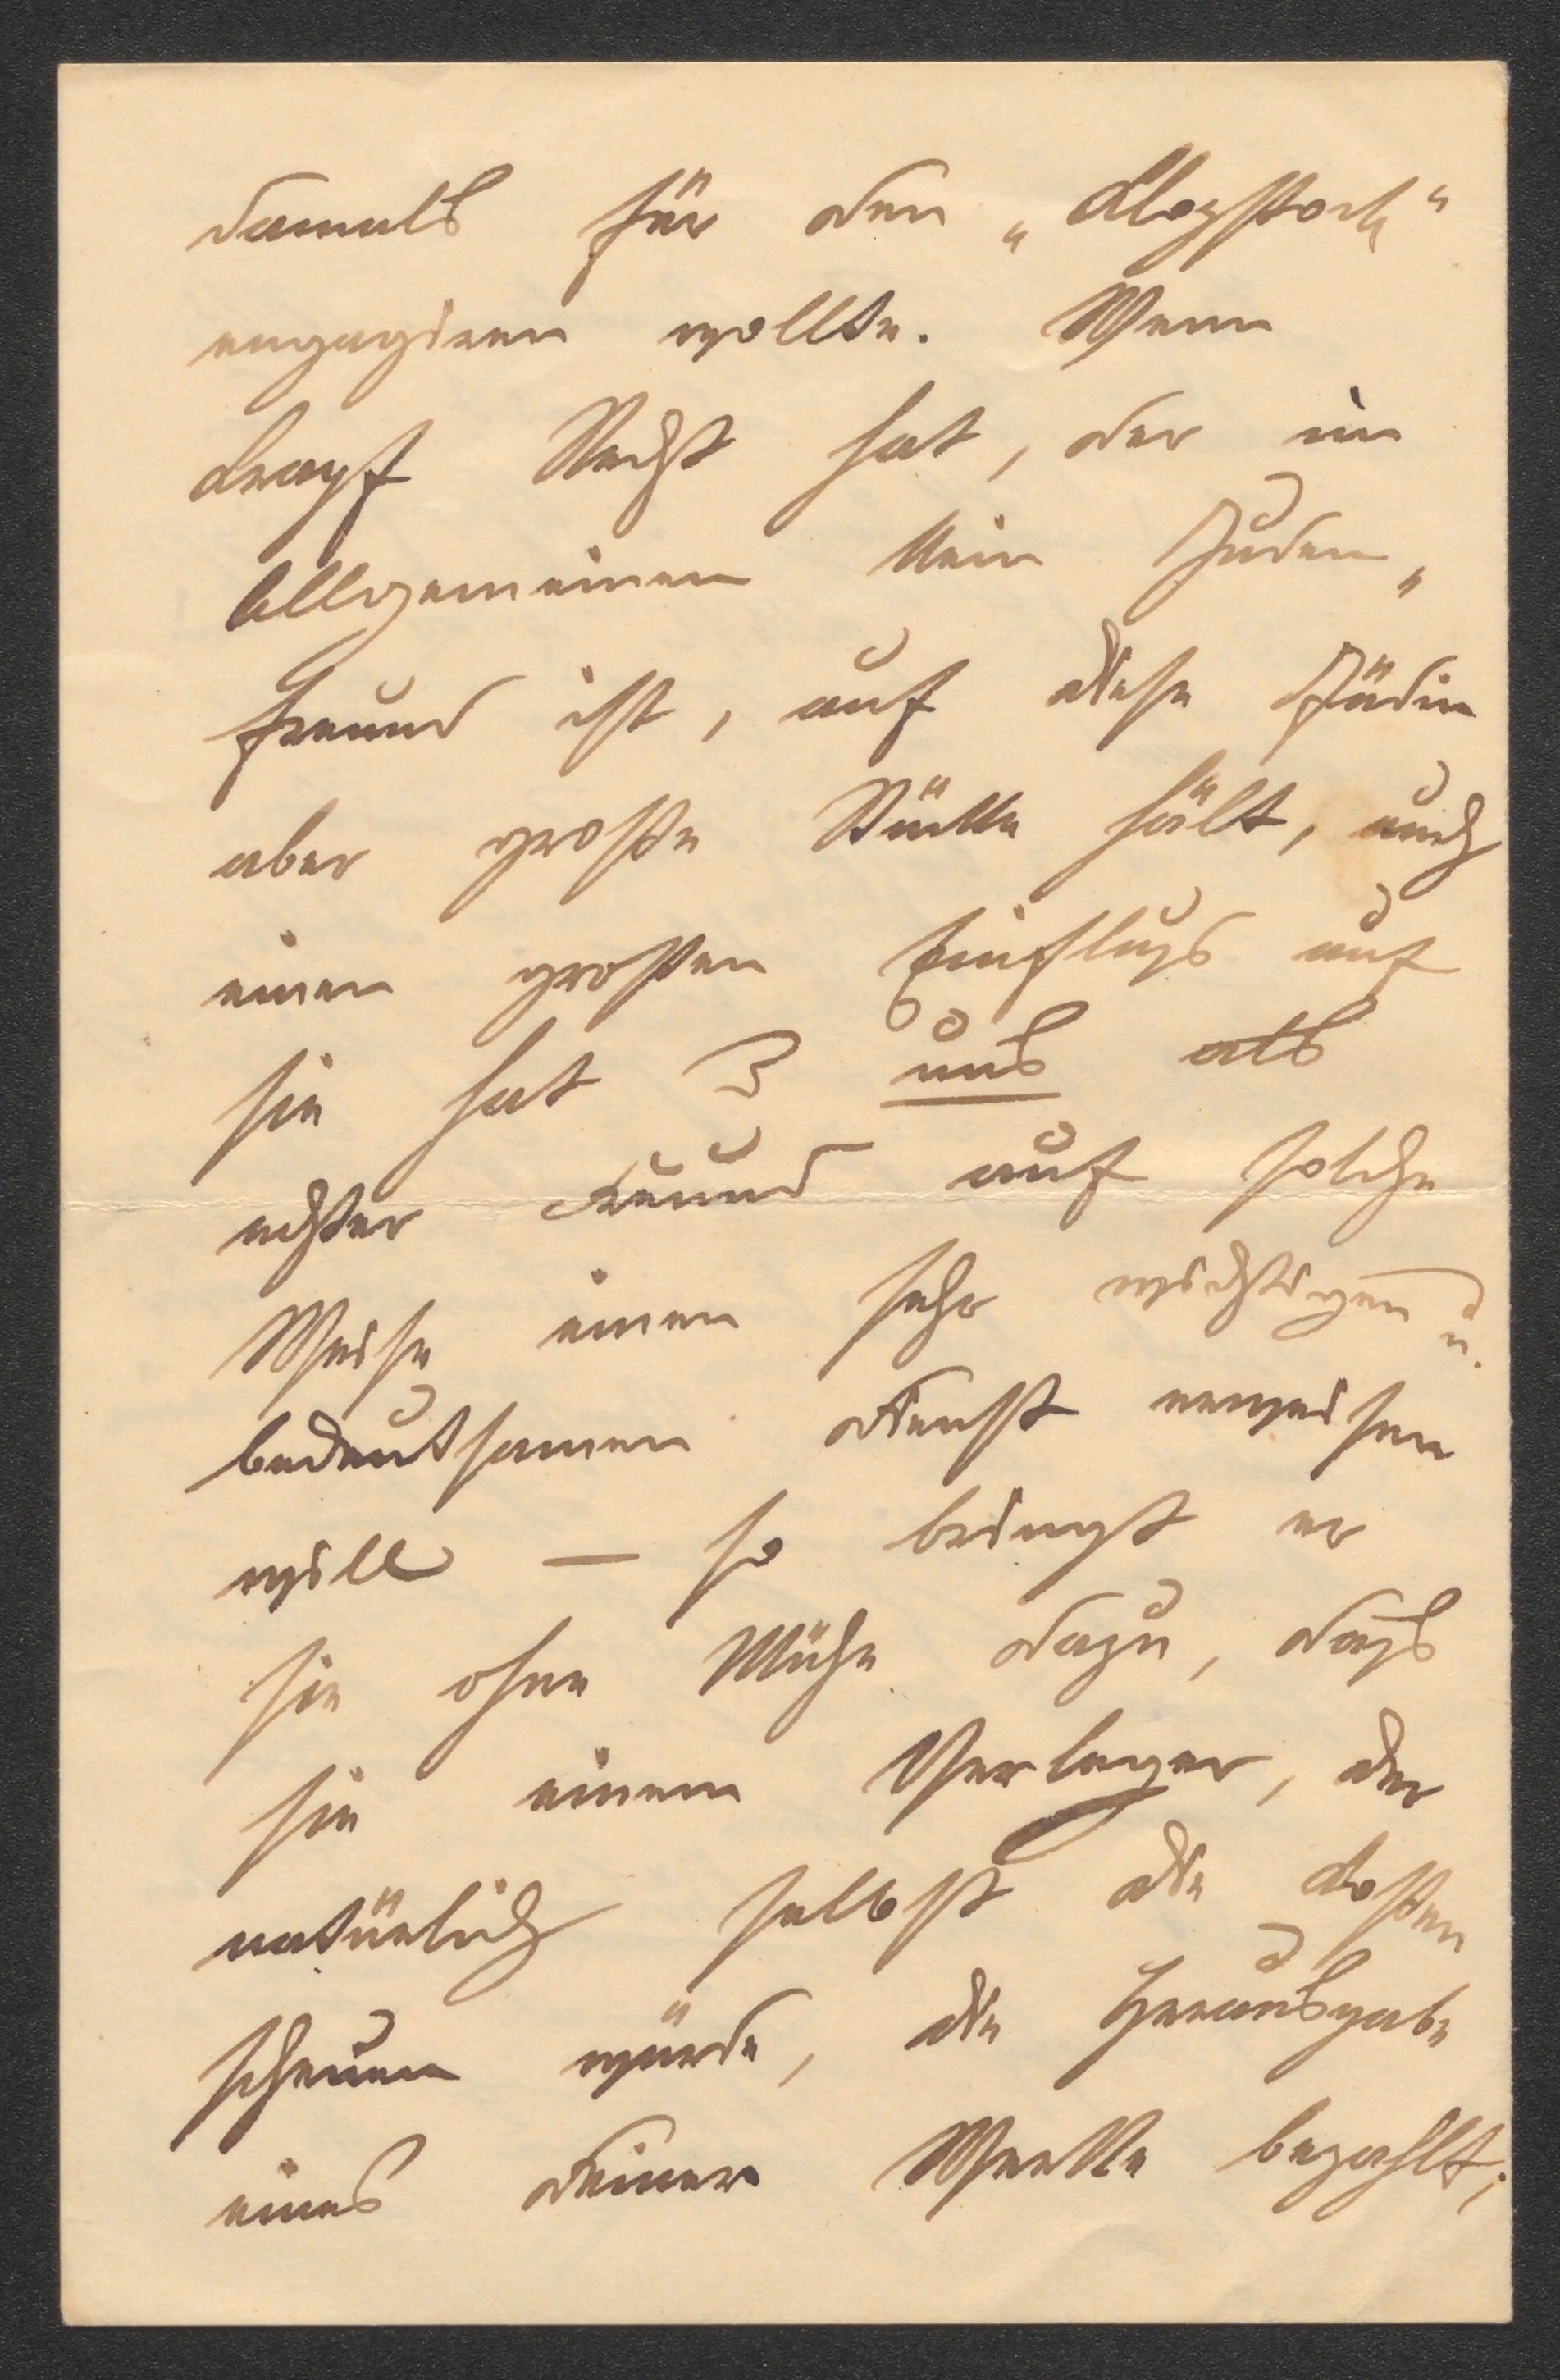 damals für den „Klopstock“
engagiren wollte. Wenn
Krapf Recht hat, der im
Allgemeinen kein Juden„
freund ist, auf diese Jüdin
aber große Stücke hält, auch
einen großen Einfluß auf
sie hat & uns als
echter Freund auf solche
Weise einen sehr wichtigen u.
bedeutsamen Dienst erweisen
will — so bringt er
sie ohne Mühe dazu, daß
sie einem Verleger, der
natürlich selbst die Kosten
scheuen würde, die Herausgabe
eines Deiner Werke bezahlt;